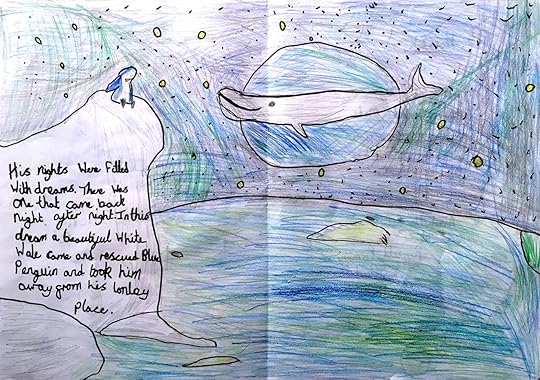 His nights Were Filled
With dreams. There was
One that came back
Night after night. In this
dream a beautiful White
Wale came and rescued Blue
Penguin and took him
away from his lonley
Place.